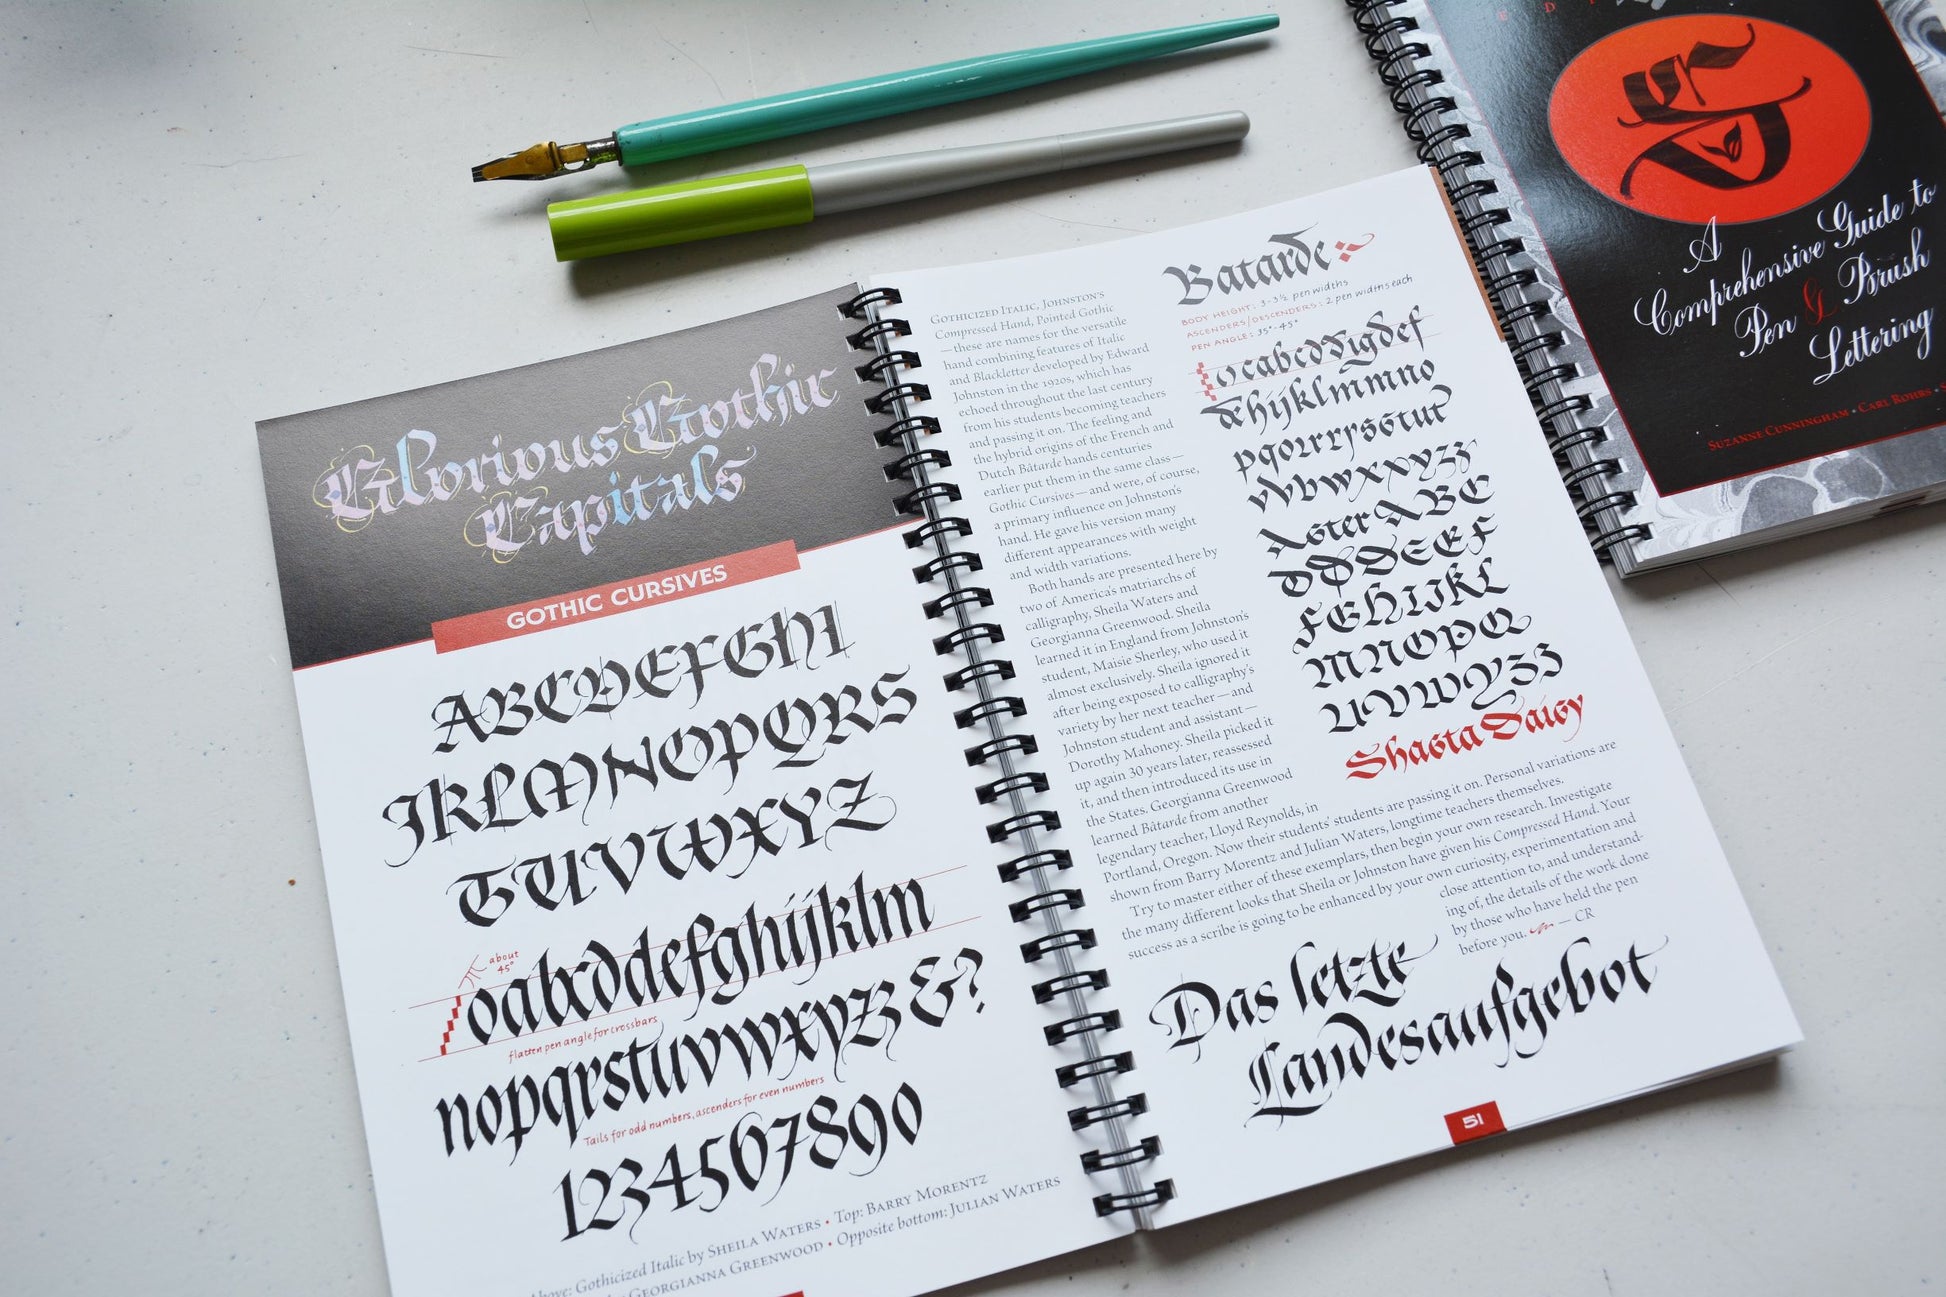 Glorious Gothic
Capitals
GOTHIC CURSIVES
ABCDEFGHI
JKLMNOPQRS
TUVWXYZ
about
45°
oabcddefghijklm
flatten pen angle for crossbars
nopqrstuvwxyz &?
Tails for odd numbers, ascenders for even numbers
1234567890
Above: Gothicized Italic by SHEILA WATERS • Top: BARRY MORENTZ
GEORGIANNA GREENWOOD • Opposite bottom: JULIAN WATERS
GOTHICIZED ITALIC, JOHNSTON'S
Compressed Hand, Pointed Gothic
—these are names for the versatile
hand combining features of Italic
and Blackletter developed by Edward
Johnston in the 1920s, which has
echoed throughout the last century
from his students becoming teachers
and passing it on. The feeling and
the hybrid origins of the French and
Dutch Bâtarde hands centuries
earlier put them in the same class—
Gothic Cursives—and were, of course,
a primary influence on Johnston's
hand. He gave his version many
different appearances with weight
and width variations.
Both hands are presented here by
two of America's matriarchs of
calligraphy, Sheila Waters and
Georgianna Greenwood. Sheila
learned it in England from Johnston's
student, Maisie Sherley, who used it
almost exclusively. Sheila ignored it
after being exposed to calligraphy's
variety by her next teacher—and
Johnston student and assistant—
Dorothy Mahoney. Sheila picked it
up again 30 years later, reassessed
it, and then introduced its use in
the States. Georgianna Greenwood
learned Bâtarde from another
legendary teacher, Lloyd Reynolds, in
Portland, Oregon. Now their students' students are passing it on. Personal variations are
shown from Barry Morentz and Julian Waters, longtime teachers themselves.
Try to master either of these exemplars, then begin your own research. Investigate
the many different looks that Sheila or Johnston have given his Compressed Hand. Your
success as a scribe is going to be enhanced by your own curiosity, experimentation and
close attention to, and understand-
ing of, the details of the work done
by those who have held the pen
before you. — CR
Batarde
BODY HEIGHT: 3-3½ pen widths
ASCENDERS/DESCENDERS: 2 pen widths each
PEN ANGLE: 35°-45°
Aster ABC
MNOPQ
Shasta Daisy
Das letzte
Landesaufgebot
51
A
Comprehensive Guide to
Pen & Brush
Lettering
SUZANNE CUNNINGHAM • CARL ROHRS •